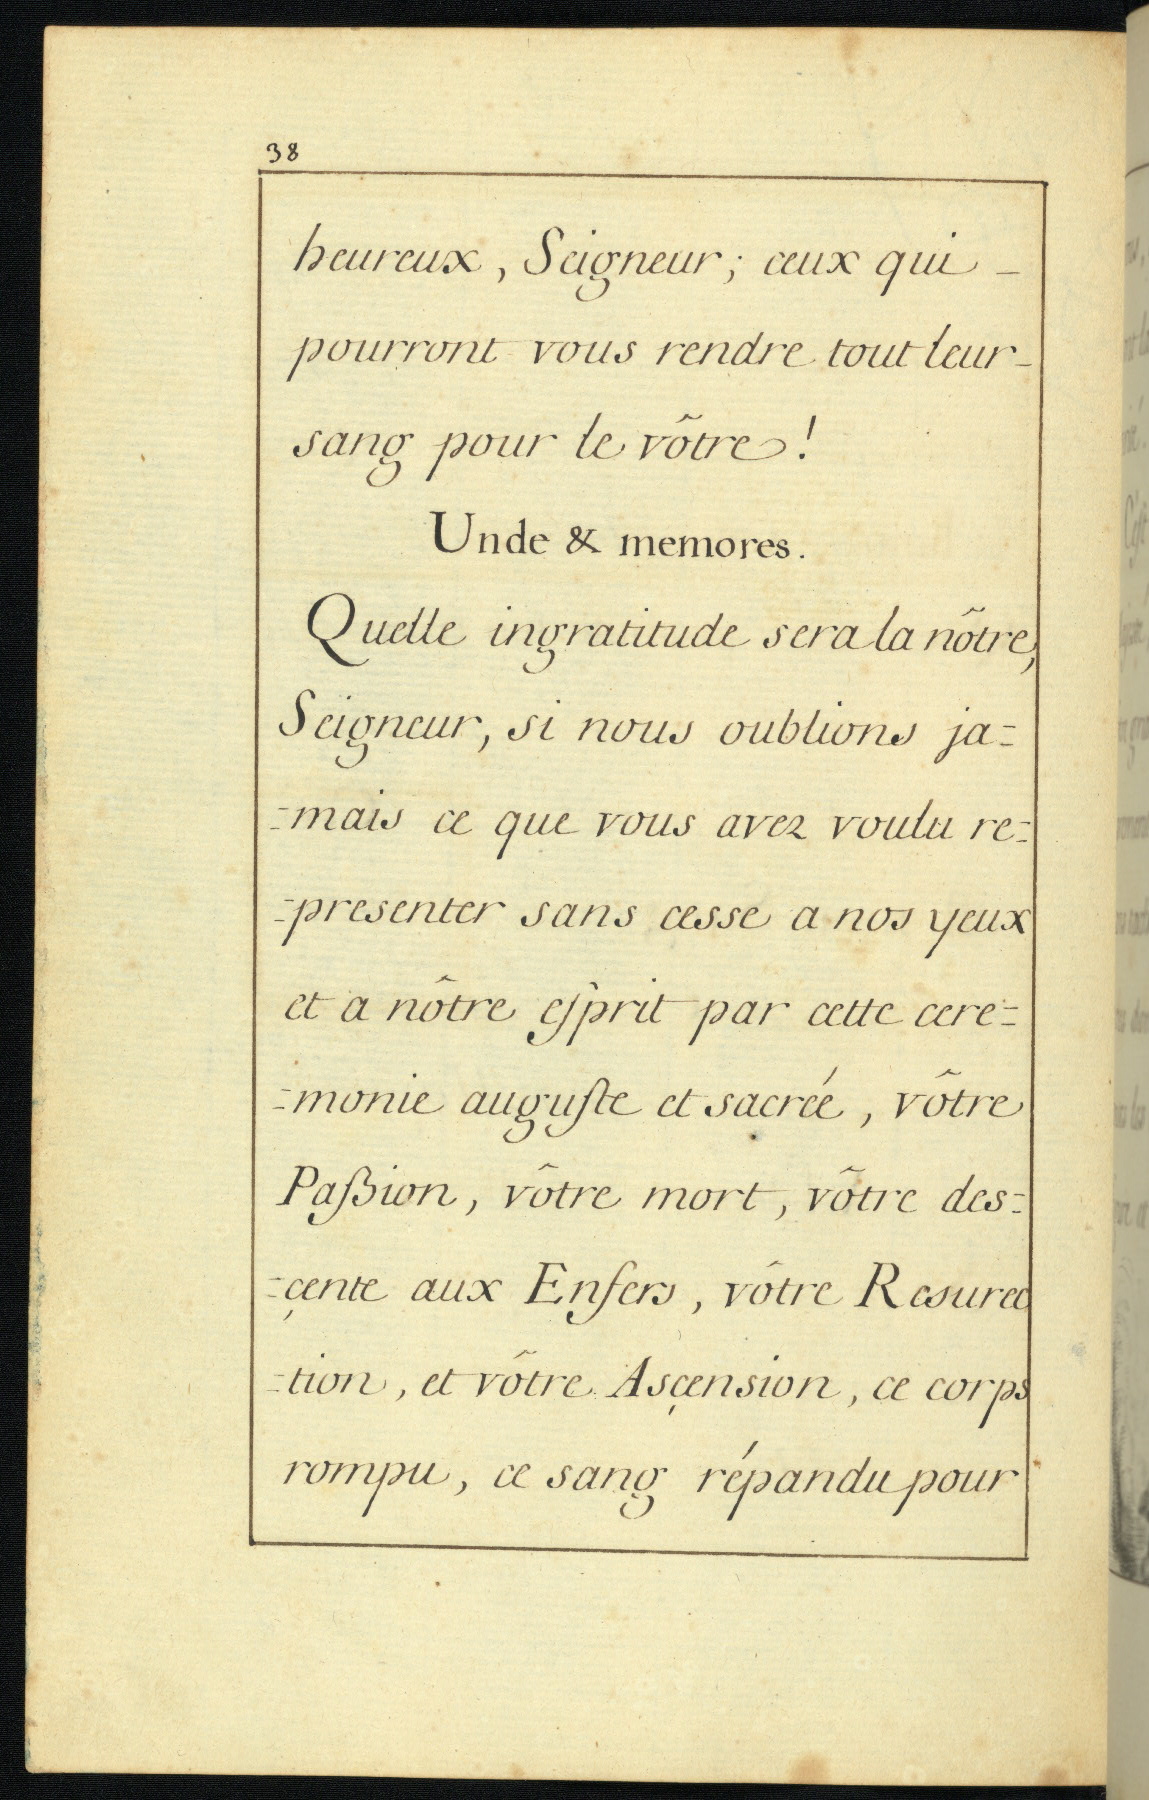 38
heureux, Seigneur; ceux qui -
pourront vous rendre tout leur -
sang pour le vôtre !
Unde & memores.
Quelle ingratitude sera la nôtre,
Seigneur, si nous oublions ja=
=mais ce que vous avez voulu re=
=presenter sans cesse a nos yeux
et a nôtre eſprit par cette cere=
=monie auguſte et sacrée, vôtre
Paßion, vôtre mort, vôtre des=
=çente aux Enfers, vôtre Resurec
=tion, et vôtre Asçension, ce corps
rompu, ce sang répandu pour